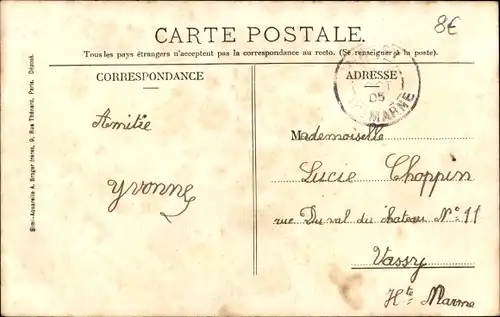 8€
CARTE POSTALE.
Tous les pays étrangers n'acceptent pas la correspondance au recto. (Se renseigner à la poste).
CORRESPONDANCE
ADRESSE
05
MARNE
Simi-Aquarelle A. Breger frères, 9, Rue Thénard, Paris. Déposé.
Amitié
Yvonne
Mademoiselle
Lucie Choppin
rue Du val du chateau N° 11
Vassy
Hte Marne